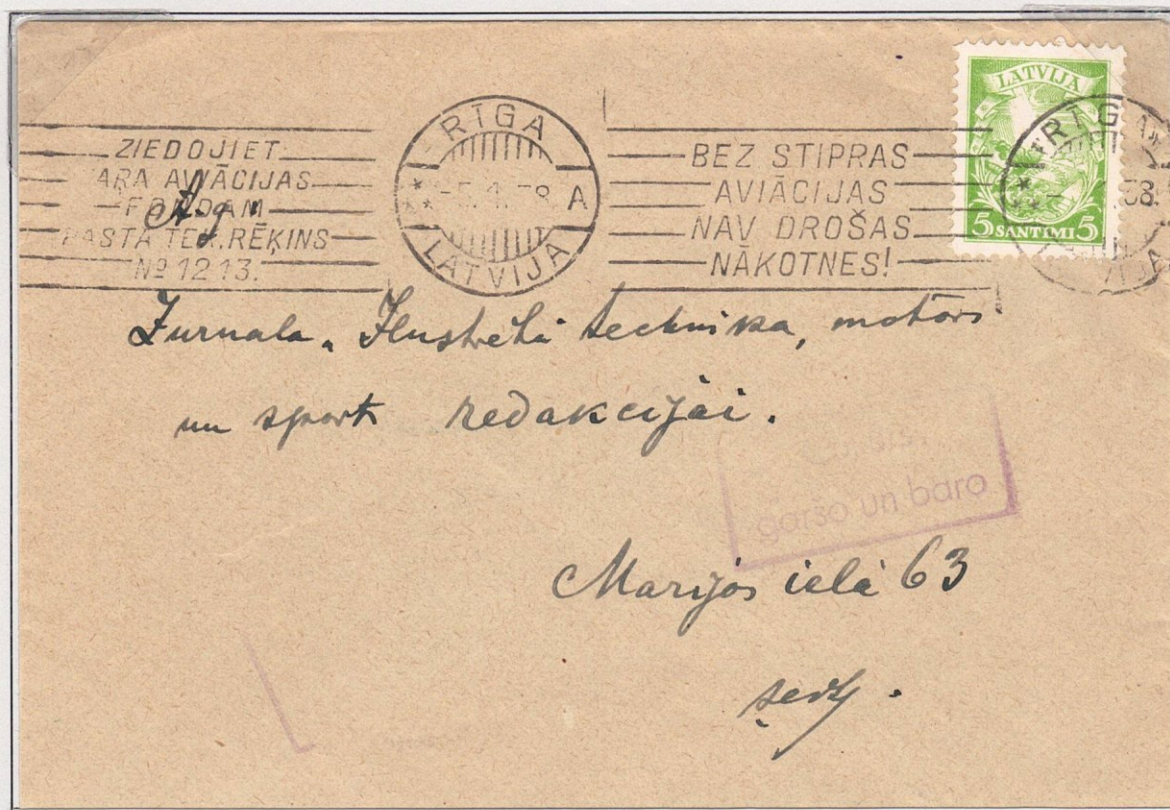 ZIEDOJIET
GAISA AVIĀCIJAS
FONDAM
PASTA TEK.RĒĶINS
№ 1213.
RĪGA
5.1.38. A
LATVIJA
BEZ STIPRAS
AVIĀCIJAS
NAV DROŠAS
NĀKOTNES!
LATVIJA
5 SANTIMI 5
RĪGA
38.
Žurnala „Ilustrētā technika, motors
un sports redakcijai.
garšo un baro
Marijas ielā 63